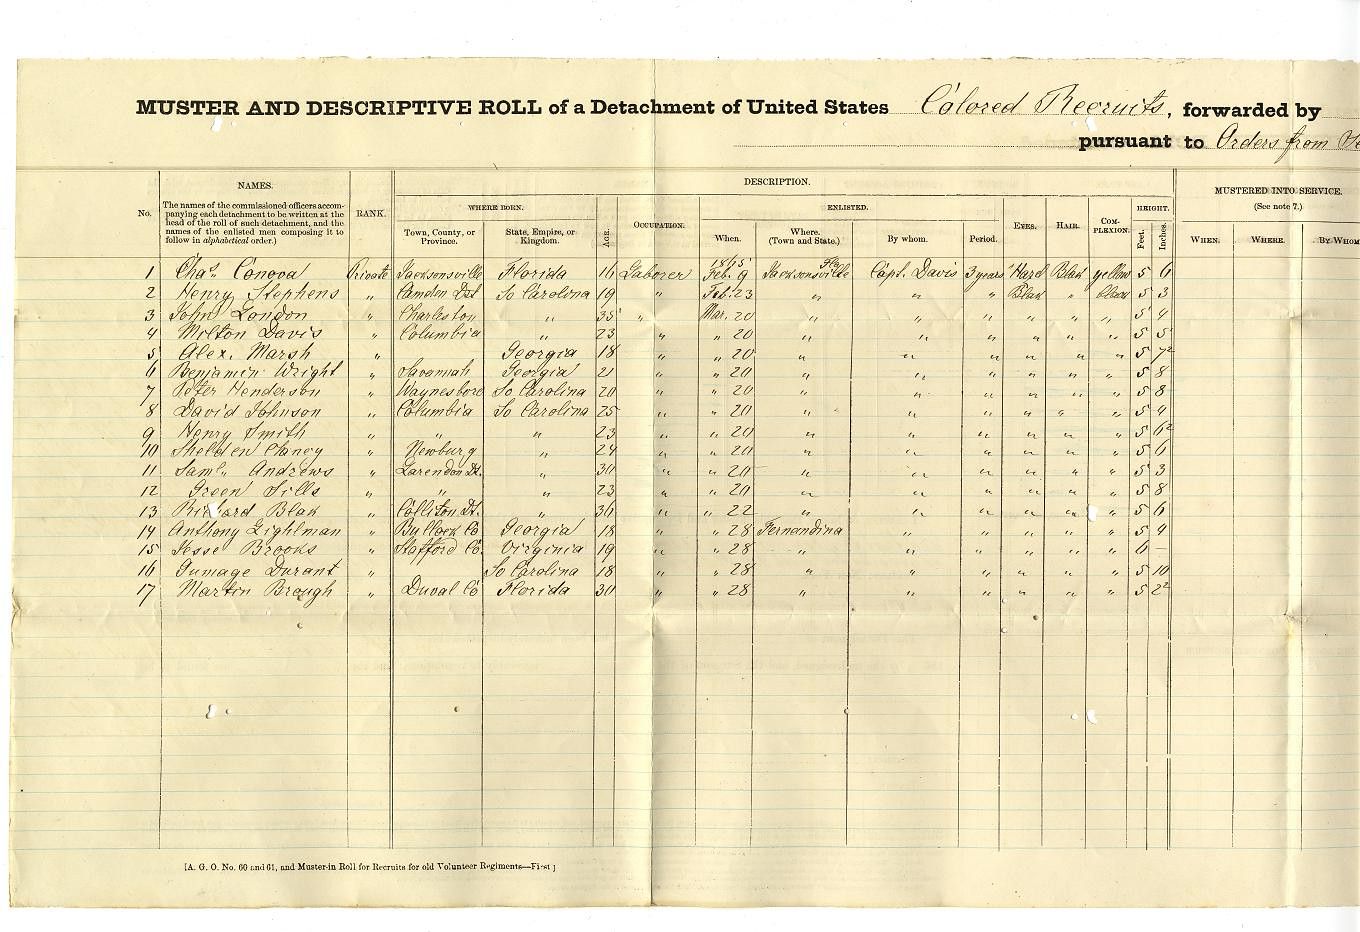 MUSTER AND DESCRIPTIVE ROLL of a Detachment of United States Colored Recruits, forwarded by
pursuant to Orders from
DESCRIPTION.
MUSTERED INTO SERVICE.
(See note 7.)
NAMES.
The names of the commissioned officers accom-
panying each detachment to be written at the
head of the roll of such detachment, and the
names of the enlisted men composing it to
follow in alphabetical order.)
No. RANK. WHERE BORN. AGE. OCCUPATION. ENLISTED. EYES. HAIR. COM-PLEXION. HEIGHT.
Town, County, or Province. State, Empire, or Kingdom. When. Where. (Town and State.) By whom. Period. Feet. Inches. WHEN. WHERE. BY WHOM
1865
1 Chas. Conova Private Jacksonsville Florida 16 Laborer Feb. 9 Jacksonsville Fla Capt. Davis 3 years Hard Blak yellow 5 6
2 Henry Stephens " Camden Dst So Carolina 19 " Feb. 23 " " " Blak " 5 3
3 John London " Charleston " 35 " Mar. 20 " " " " " " 5 4
4 Molton Davis " Columbia " 23 " " 20 " " " " " " 5 5
5 Alex. Marsh " Georgia 18 " " 20 " " " " " " 5 7½
6 Benjamin Wright " Savannah Georgia 21 " " 20 " " " " " " 5 8
7 Peter Henderson " Waynesboro So Carolina 20 " " 20 " " " " " " 5 8
8 David Johnson " Columbia So Carolina 25 " " 20 " " " " " " 5 4
9 Henry Smith " " " 23 " " 20 " " " " " " 5 6½
10 Shelden Chaney " Newburg " 24 " " 20 " " " " " " 5 6
11 Saml. Andrews " Larendon Dt. " 30 " " 20 " " " " " " 5 3
12 Green Sills " " " 23 " " 20 " " " " " " 5 8
13 Richard Blak " Colliton Dt. " 36 " " 22 " " " " " " 5 6
14 Anthony Lighlman " Bullock Co Georgia 18 " " 28 Fernandina " " " " " 5 9
15 Jesse Brooks " Stafford Co. Virginia 19 " " 28 " " " " " " 6 —
16 Gumage Durant " So Carolina 18 " " 28 " " " " " " 5 10
17 Martin Brough " Duval Co Florida 30 " " 28 " " " " " " 5 2½
[A. G. O. No. 60 and 61, and Muster-in Roll for Recruits for old Volunteer Regiments—First]